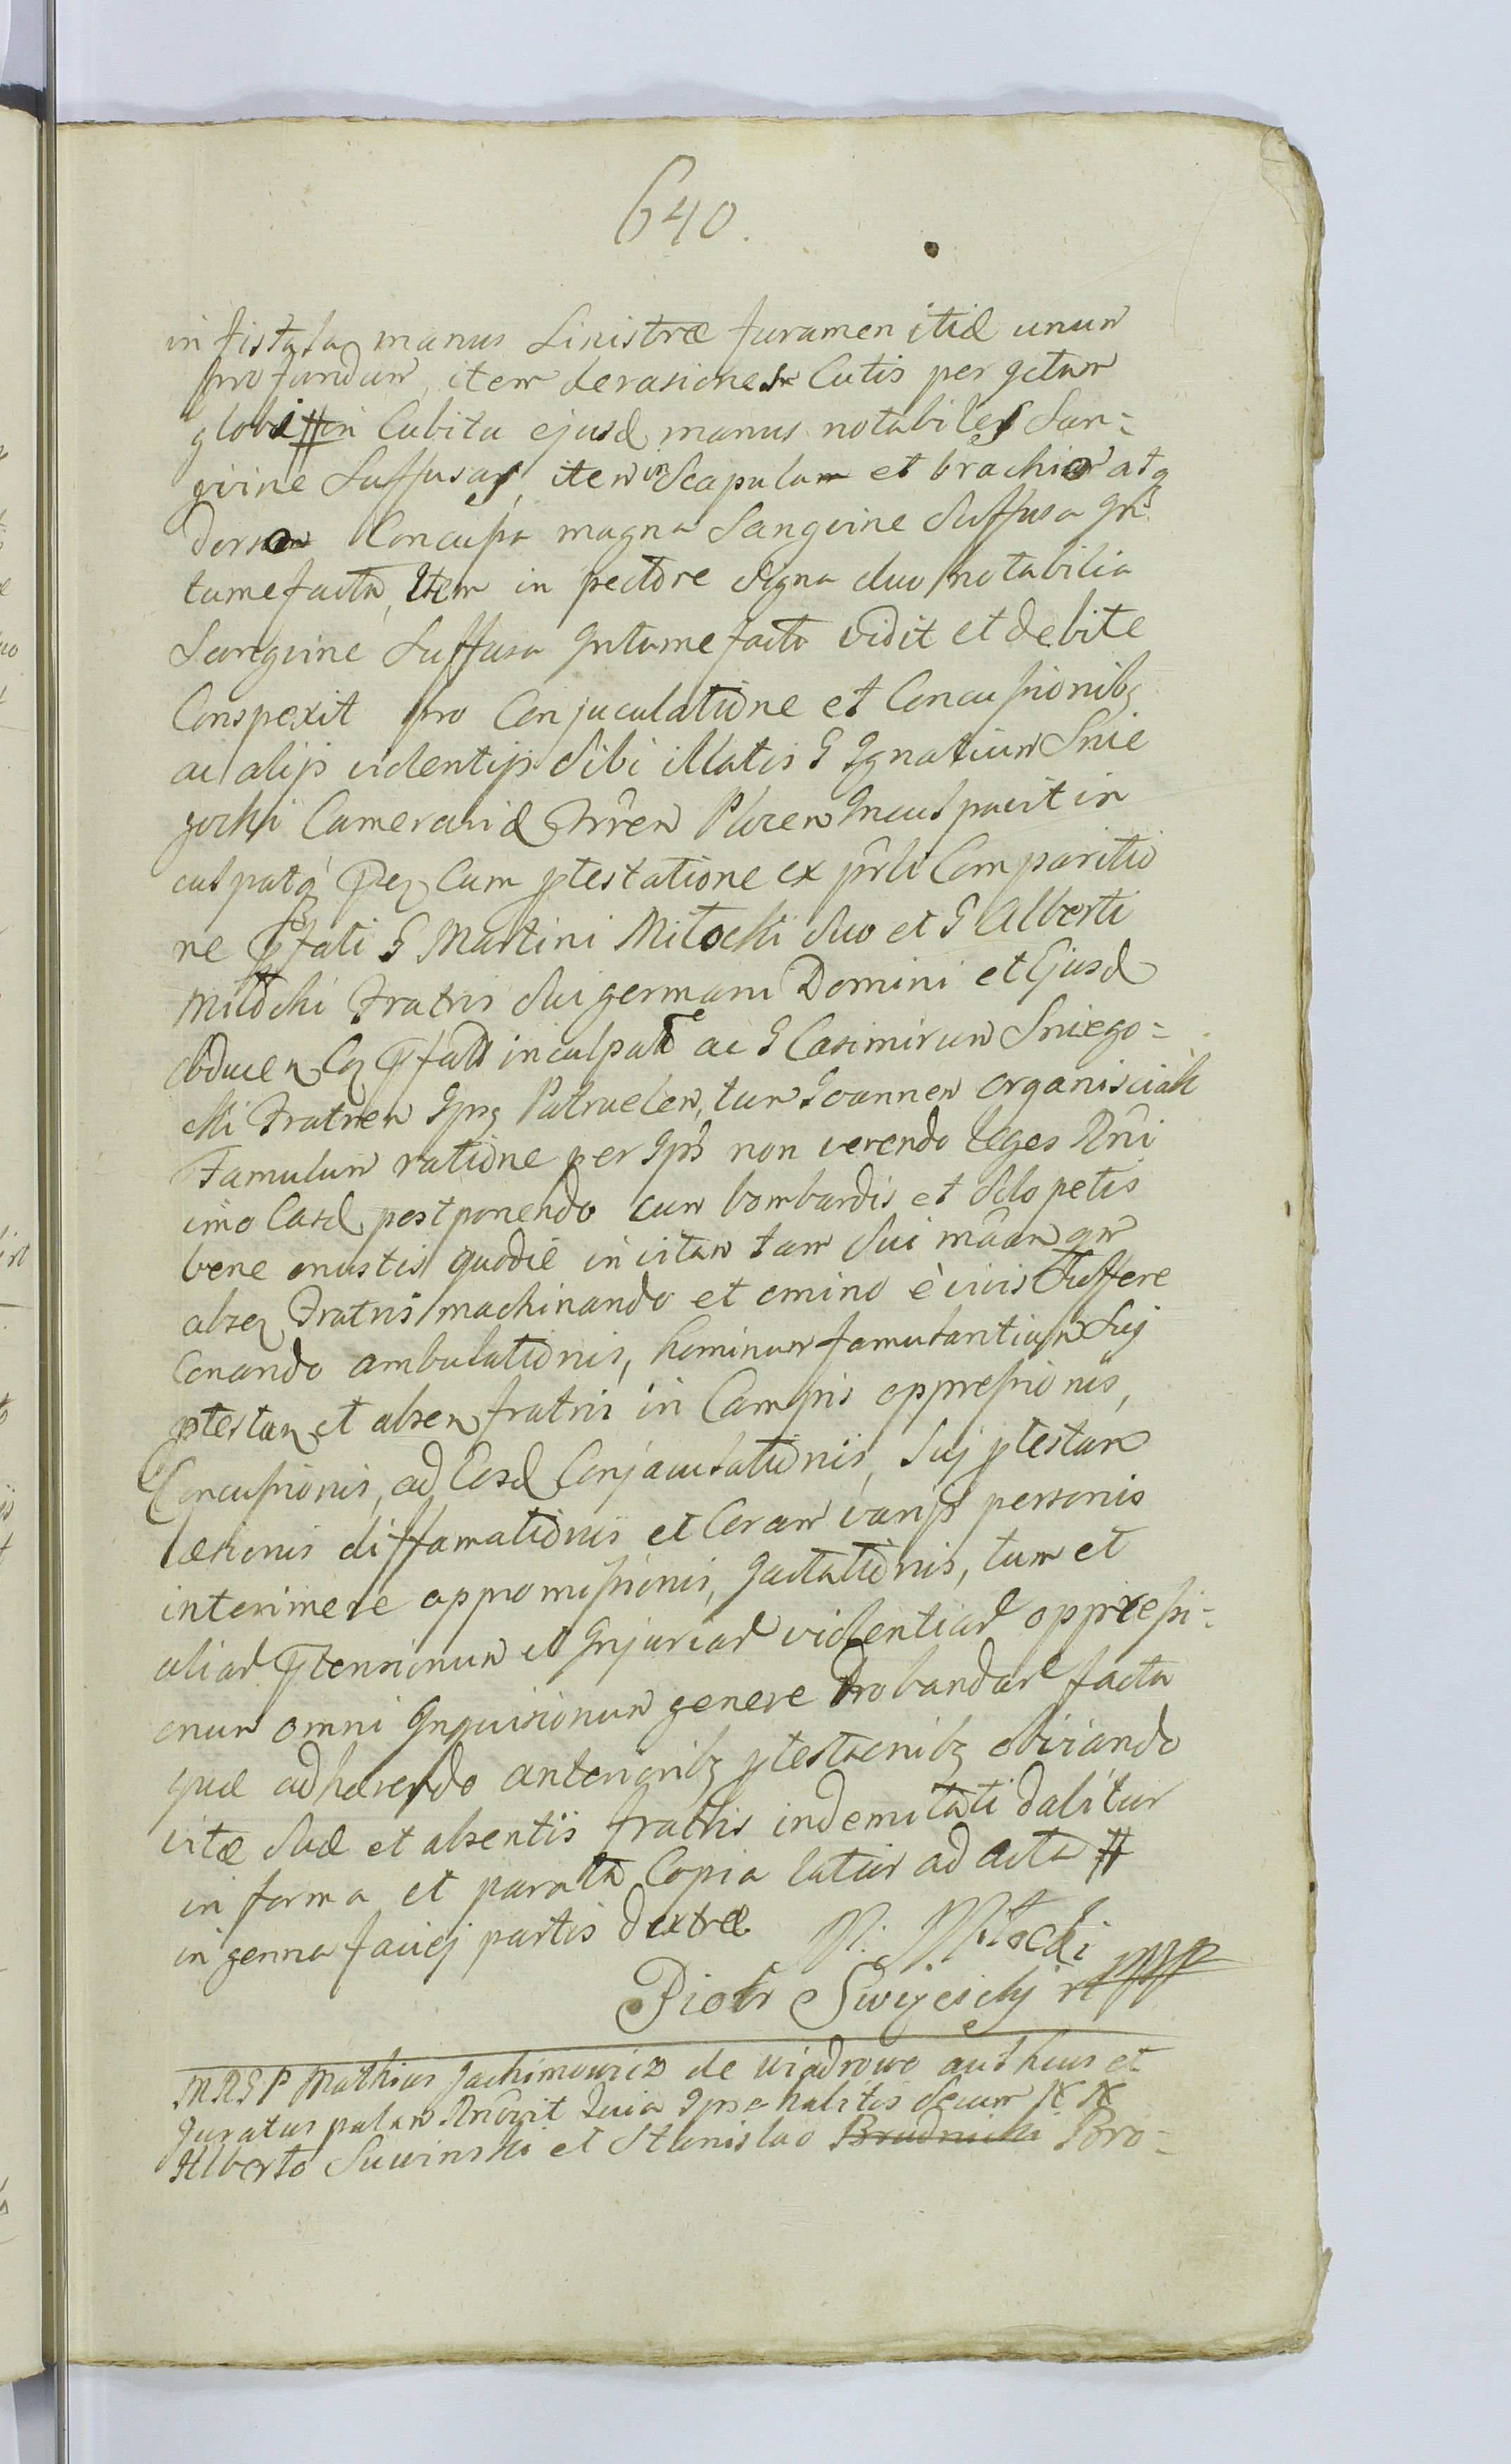 640.
in fistula manus Sinistræ furamen itid unum
profundum, item derasiones Cutis per ictum
globi # in Cubitu ejusd manus notabiles San-
gvine Suffusas, item in Scapulam et brachio atq
dorso Concussa magna Sangvine Suffusa In
tumefacta, Item in pectore Signa duo notabilia
Sangvine Suffusa Intumefacta vidit et debite
Conspexit pro Conjaculatione et Concussionibq
ac alijs violentijs Sibi illatis G Ignatium Snie
gocki Camerarid Trren Plocen Inculpavit in
culpatq Peq Cum ptestatione ex prli Comparitio
ne Pfati G Martini Milocki Suo et G Alberti
Milocki Fratris Sui germani Domini et Ejusd
obducen Coq Pfatd inculpatu ac G Casimirum Sniego-
cki Fratrem Ipsq Patruelem, tum Joannem organisciak
Famulum ratione per Ips non verendo leges Rni
imo Easd postponendo cum bombardis et Sclopetis
bene onustis quodie in vitam tam Sui man qm
absen Fratris machinando et omino è vivis Tuffere
Conando ambulationis, hominum famulantium Suj
ptestan et absen fratris in Campis oppressionis,
Concussionis, ad Eosd Conjaculationis, Suj ptestan
læsionis diffamationis et Coram varijs personis
interimere appromissionis, Jactationis, tum et
aliar Ptensionum et Injuriar violentiar oppressi-
onum omni Inquisionum genere Probandar facta
quæ adhærendo anterioribq ptestaonibq obviando
vitæ Suæ et absentis fratris indemitati dabitur
in forma et parata Copia latur ad acta #
in genna faucj partis dextræ
M. Milocki
Piotr Swięcicky mpp
MRSP Mathias Jachimowicz de Wiadrowo authcus et
Juratus palam Rnovit Quia Ipse habitis Secum NN
Alberto Suwinski et Stanislao Brudnicki Bro-